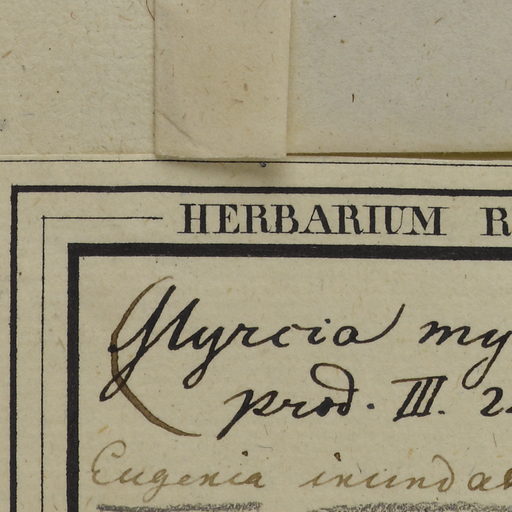 HERBARIUM R
(Myrcia my
prod. III. 2
Eugenia inunda